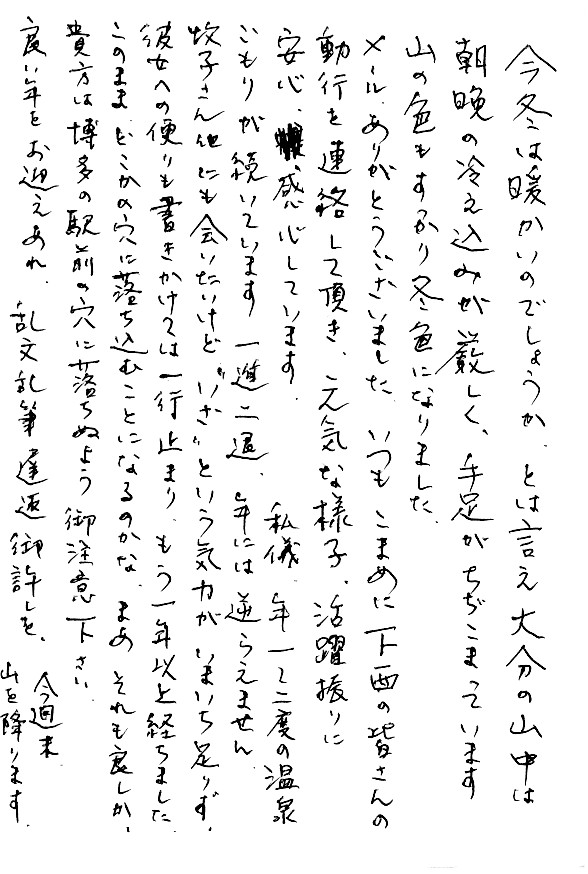 今冬は暖かいのでしょうか、とは言え大分の山中は
朝晩の冷え込みが厳しく、手足がちぢこまっています
山の色もすっかり冬色になりました、
メール、ありがとうございました、いつもこまめに下西の皆さんの
動行を連絡して頂き、元気な様子、活躍振りに
安心、感心しています。 私儀、年一〜二度の温泉
ごもりが続いています 一進二退、年には逆らえません、
牧子さん他にも会いたいけど“いざ”という気力がいまいち足りず、
彼女への便りも書きかけては一行止まり、もう一年以上経ちました、
このまま、どこかの穴に落ち込むことになるのかな、まあ それも良しか、
貴方は博多の駅前の穴に落ちぬよう御注意下さい、
良い年をお迎えあれ、 乱文乱筆 御許しを、
今週末
山を降ります、